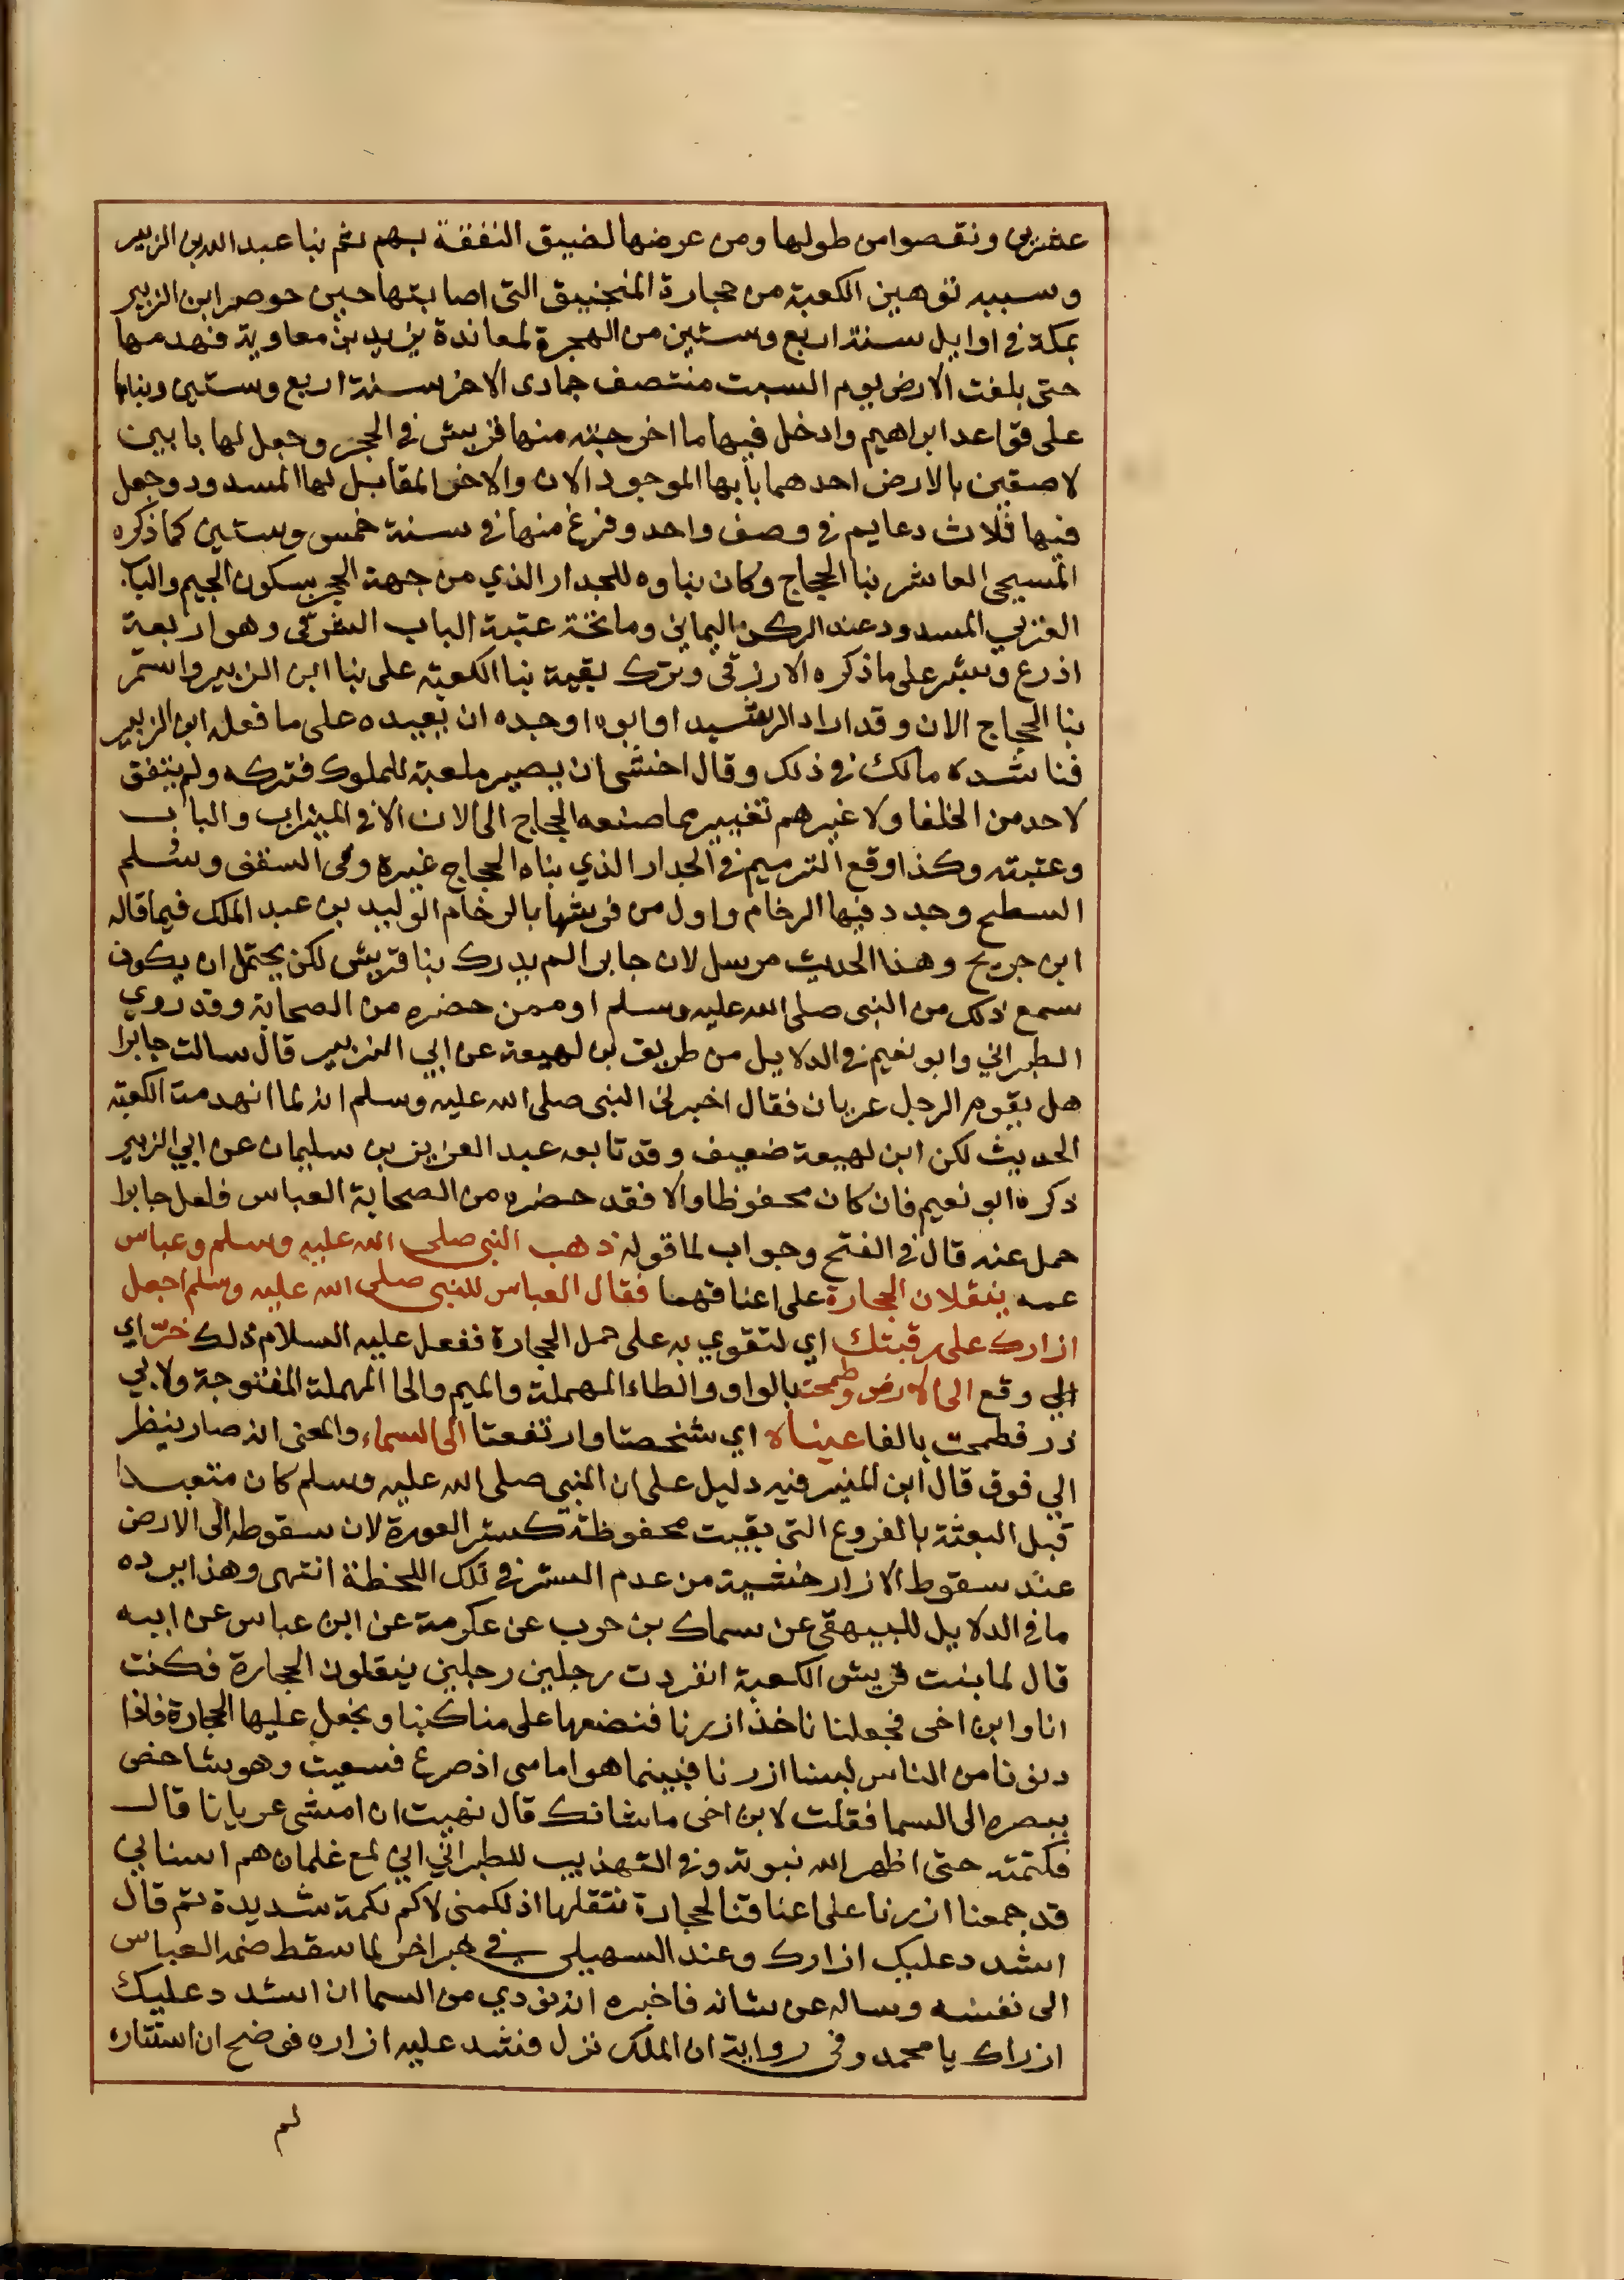 عشربى ونقصوا من طولها ومن عرضها لضيق النفقة بهم ثم بنا عبدالله بن الزبير
وسببه توهين الكعبة من حجارة المنجنيق التى اصابتها حين حوصر ابن الزبير
بمكة فى اوايل سنة اربع وستين من الهجرة لمعاندة يزيد بن معاوية فهدمها
حتى بلغت الارض يوم السبت منتصف جمادى الاخر سنة اربع وستين وبناها
على قواعد ابراهيم وادخل فيها ما اخرجته منها قريش فى الحجر وجعل لها بابين
لاصقين بالارض احدهما بابها الموجود الان والاخر المقابل لها المسدود وجعل
فيها ثلاث دعايم فى وصف واحد وفرغ منها فى سنة خمس وستين كما ذكره
المسيحى العاشر بنا الحجاج وكان بناوه للجدار الذي من جهة الحجر بسكون الجيم والباب
الغزبي المسدود عند الركن اليمانى وما تحته عتبة الباب الشرقى وهو اربعة
اذرع وشبر على ما ذكره الازرقى وترك بقية بنا الكعبة على بنا ابن الزبير واستمر
بنا الحجاج الان وقد اراد الرشيد او ابوه او جده ان يعيده على ما فعله ابن الزبير
فناشده مالك فى ذلك وقال اخشى ان يصير ملعبة للملوك فتركه ولم يتفق
لاحد من الخلفا ولا غيرهم تغيير مما صنعه الحجاج الى الان الا فى الميزاب والباب
وعتبته وكذا وقع الترميم فى الجدار الذي بناه الحجاج غيره وفى السقف وسلم
السطح وجدد فيها الرخام واول من فرشها بالرخام الوليد بن عبد الملك فيما قاله
ابن جريح وهذا الحديث مرسل لان جابرا لم يدرك بنا قريش لكن يحتمل ان يكون
سمع ذلك من النبى صلى الله عليه وسلم او ممن حضره من الصحابة وقد روي
الطبرانى وابو نعيم فى الدلايل من طريق بن لهيعة عن ابي الزبير قال سالت جابرا
هل يقوم الرجل عريان فقال اخبرنى النبى صلى الله عليه وسلم انه لما انهدمت الكعبة
الحديث لكن ابن لهيعة ضعيف وقد تابعه عبد العزيز بن سليمان عن ابي الزبير
ذكره ابو نعيم فان كان محفوظا والا فقد حضره من الصحابة العباس فلعل جابرا
حمل عنه قال فى الفتح وجواب لما قوله ذهب النبى صلى الله عليه وسلم وعباس
عمه ينقلان الحجارة على اعناقهما فقال العباس للنبى صلى الله عليه وسلم اجعل
ازارك على رقبتك اي لتقوي به على حمل الحجارة ففعل عليه السلام ذلك خرّ اي
الي وقع الى الارض وطمحت بالواو والطاء المهملة والميم والحا المهملة المفتوحة ولابي
ذر فطمحت بالفا عيناه اي شخصتا وارتفعتا الى السماء والمعنى انه صار ينظر
الي فوق قال ابن المنير فيه دليل على ان النبى صلى الله عليه وسلم كان متعبدا
قبل البعثة بالفروع التى بقيت محفوظة كستر العورة لان سقوطه الى الارض
عند سقوط الازار خشية من عدم الستر فى تلك اللحظة انتهى وهذا يرده
ما فى الدلايل للبيهقى عن سماك بن حرب عن عكرمة عن ابن عباس عن ابيه
قال لما بنت قريش الكعبة انفردت رجلين رجلين ينقلون الحجارة فكنت
انا وابن اخى فجعلنا ناخذ ازرنا فنضعها على مناكبنا ونجعل عليها الحجارة فاذا
دنونا من الناس لبسنا ازرنا فبينما هو امامى اذ صرع فسعيت وهو شاخص
ببصره الى السما فقلت لابن اخى ما شانك قال نهيت ان امشى عريانا قال
فكتمته حتى اظهر الله نبوته وفى التهذيب للطبرانى ابي لمع غلمان هم اسنابي
قد جمعنا ازرنا على اعناقنا لحجارة ننقلها اذ لكمنى لاكم لكمة شديدة ثم قال
اشدد عليك ازارك وعند السهيلى فى خبر اخر لما سقط ضمه العباس
الى نفسه وساله عن شانه فاخبره انه نودي من السما ان اشدد عليك
ازراك يا محمد وفى رواية ان الملك نزل فشد عليه ازاره فوضح ان استتاره
لم